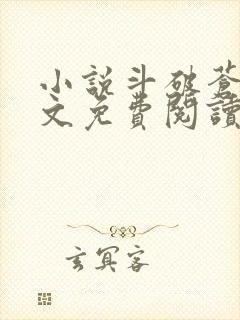 小說斗破蒼
文免費閱讀
玄冥客